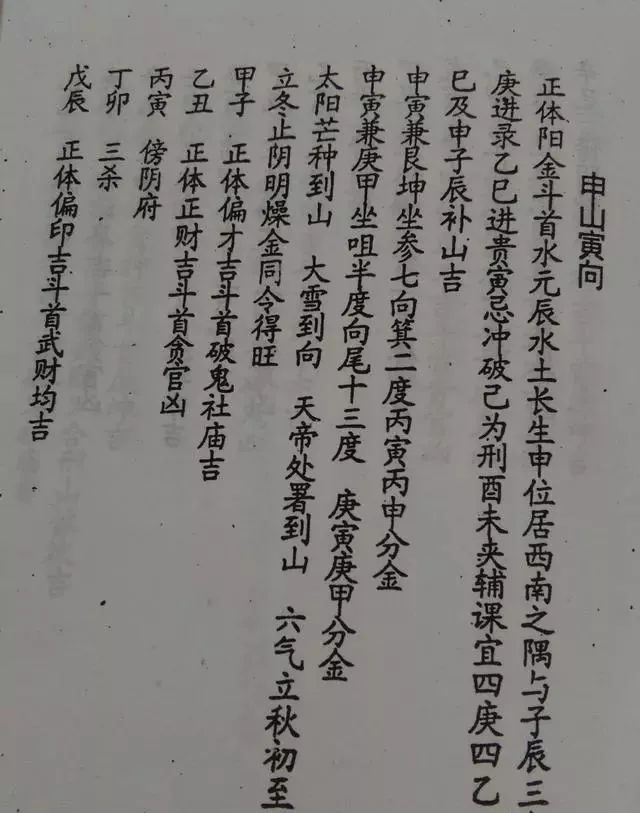 申山寅向
正体阳金斗首水元辰水土长生申位居西南之隅与子辰三
庚进录乙巳进贵寅忌冲破己为刑酉未夹辅课宜四庚四乙
巳及申子辰补山吉
申寅兼艮坤坐参七向箕二度丙寅丙申分金
申寅兼庚甲坐咀半度向尾十三度 庚寅庚甲分金
太阳芒种到山 大雪到向 天帝处署到山 六气立秋初至
立冬止阴明燥金同令得旺
甲子 正体偏才吉斗首破鬼社庙吉
乙丑 正体正财吉斗首贪官凶
丙寅 傍阴府
丁卯 三杀
戊辰 正体偏印吉斗首武财均吉